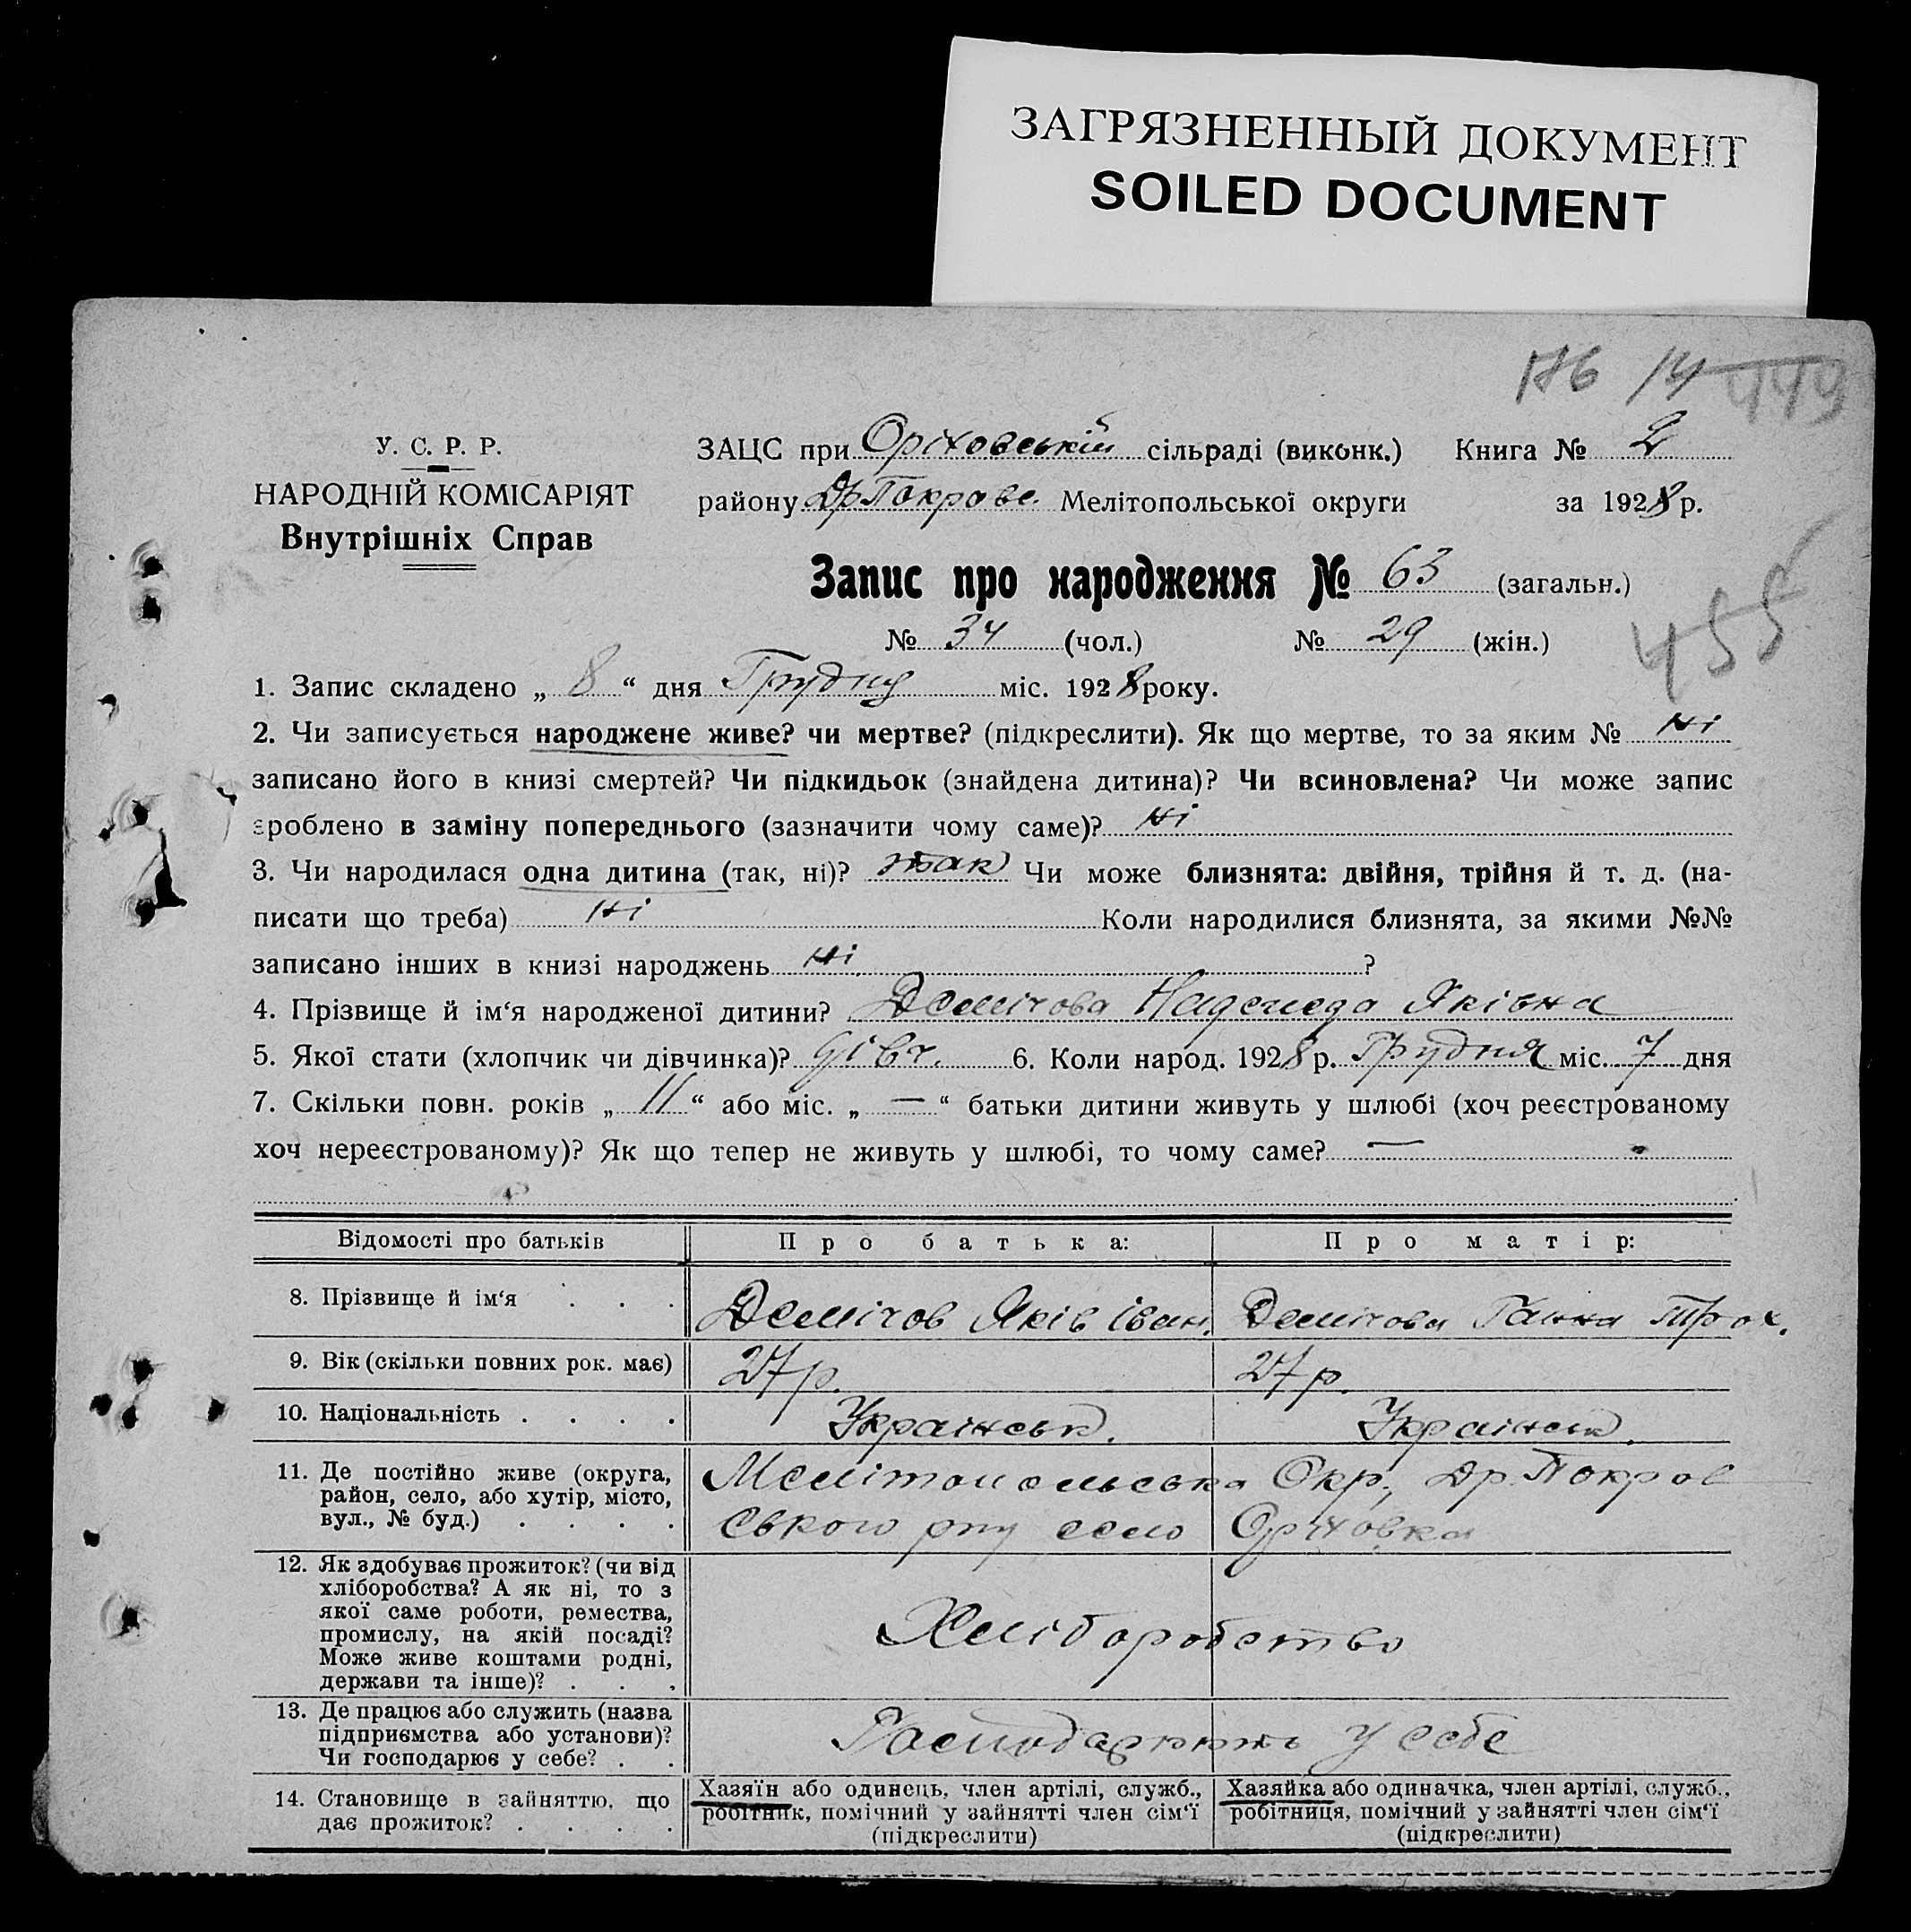 ЗАГРЯЗНЕННЫЙ ДОКУМЕНТ
SOILED DOCUMENT
176 14 449
У. С. Р. Р.
НАРОДНІЙ КОМІСАРІЯТ
Внутрішніх Справ
ЗАЦС при Оріховській сільраді (виконк.) Книга № 2
району Др Покровс. Мелітопольської округи за 1928 р.
Запис про народження № 63 (загальн.)
№ 34 (чол.) № 29 (жін.)
455
1. Запис складено „ 8 “ дня Грудня міс. 1928 року.
2. Чи записується народжене живе? чи мертве? (підкреслити). Як що мертве, то за яким № Ні
записано його в книзі смертей? Чи підкидьок (знайдена дитина)? Чи всиновлена? Чи може запис
зроблено в заміну попереднього (зазначити чому саме)? Ні
3. Чи народилася одна дитина (так, ні)? так Чи може близнята: двійня, трійня й т. д. (на-
писати що треба) Ні Коли народилися близнята, за якими №№
записано інших в книзі народжень Ні ?
4. Прізвище й ім‘я народженої дитини? Демічова Надежда Яківна
5. Якої стати (хлопчик чи дівчинка)? дівч. 6. Коли народ. 1928 р. Грудня міс. 7 дня
7. Скільки повн. років „ 11 “ або міс. „ — “ батьки дитини живуть у шлюбі (хоч реєстрованому
хоч нереєстрованому)? Як що тепер не живуть у шлюбі, то чому саме? —
Відомості про батьків Про батька: Про матір:
8. Прізвище й ім‘я . . . Демічов Яків Іван. Демічова Ганна Трох.
9. Вік (скільки повних рок. має) 27 р. 27 р.
10. Національність . . . . Українськ. Українськ.
11. Де постійно живе (округа, Мелітопольська Окр., Др. Покров
район, село, або хутір, місто,
вул., № буд.) . . . . ського р-ну село Оріховка
12. Як здобуває прожиток? (чи від
хліборобства? А як ні, то з
якої саме роботи, ремества,
промислу, на якій посаді? Хліборобство
Може живе коштами родні,
держави та інше)? . . .
13. Де працює або служить (назва
підприємства або установи)? Господарюють у себе
Чи господарює у себе? . .
14. Становище в зайняттю, що
дає прожиток? . . . .
Хазяїн або одинець, член артілі, служб.,
робітник, помічний у зайнятті член сім‘ї
(підкреслити)
Хазяйка або одиначка, член артілі, служб.,
робітниця, помічний у зайнятті член сім‘ї
(підкреслити)